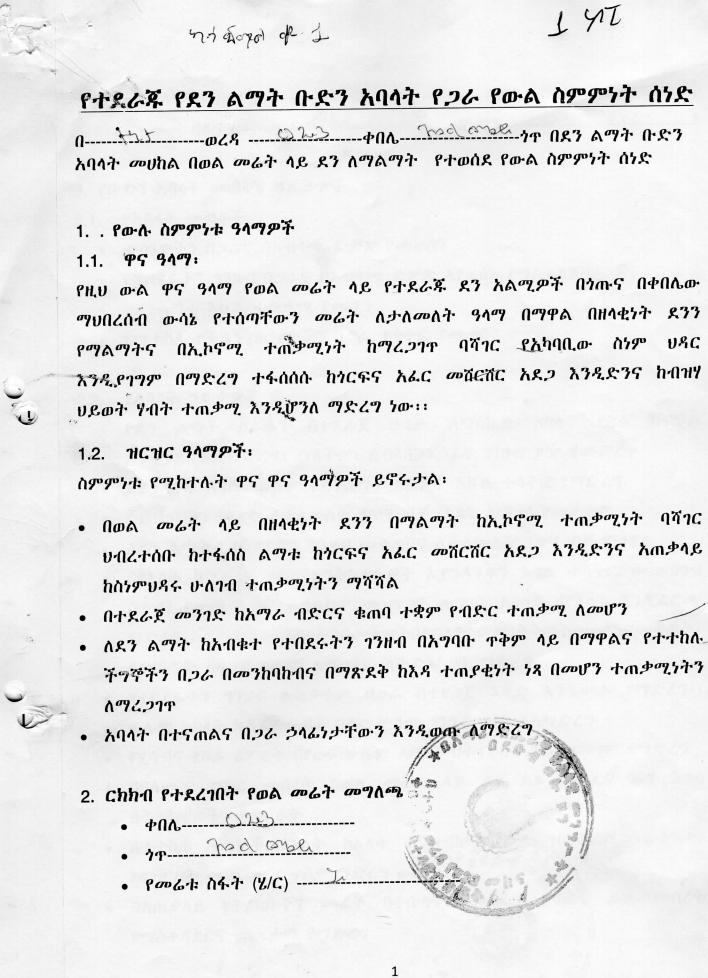 የተደራጁ የደን ልማት ቡድን አባላት የጋራ የውል ስምምነት ሰነድ
በ---------------------ወረዳ --------------------ቀበሌ---------------------ጎጥ በደን ልማት ቡድን
አባላት መሀከል በወል መሬት ላይ ደን ለማልማት የተወሰደ የውል ስምምነት ሰነድ
1. . የውሉ ስምምነቱ ዓላማዎች
1.1. ዋና ዓላማ፡
የዚህ ውል ዋና ዓላማ የወል መሬት ላይ የተደራጁ ደን አልሚዎች በጎጡና በቀበሌው
ማህበረሰብ ውሳኔ የተሰጣቸውን መሬት ለታለመለት ዓላማ በማዋል በዘላቂነት ደንን
የማልማትና በኢኮኖሚ ተጠቃሚነት ከማረጋገጥ ባሻገር የአካባቢው ስነም ህዳር
እንዲያገግም በማድረግ ተፋሰሰሱ ከጎርፍና አፈር መሸርሸር አደጋ እንዲድንና ከብዝሃ
ህይወት ሃብት ተጠቃሚ እንዲሆንለ ማድረግ ነው፡፡
1.2. ዝርዝር ዓላማዎች፡
ስምምነቱ የሚከተሉት ዋና ዋና ዓላማዎች ይኖሩታል፡
• በወል መሬት ላይ በዘላቂነት ደንን በማልማት ከኢኮኖሚ ተጠቃሚነት ባሻገር
ህብረተሰቡ ከተፋሰስ ልማቱ ከጎርፍና አፈር መሸርሸር አደጋ እንዲድንና አጠቃላይ
ከስነምህዳሩ ሁለገብ ተጠቃሚነትን ማሻሻል
• በተደራጀ መንገድ ከአማራ ብድርና ቁጠባ ተቋም የብድር ተጠቃሚ ለመሆን
• ለደን ልማት ከአብቁተ የተበደሩትን ገንዘብ በአግባቡ ጥቅም ላይ በማዋልና የተተከሉ
ችግኞችን በጋራ በመንከባከብና በማጽደቅ ከእዳ ተጠያቂነት ነጻ በመሆን ተጠቃሚነትን
ለማረጋገጥ
• አባላት በተናጠልና በጋራ ኃላፊነታቸውን እንዲወጡ ለማድረግ
2. ርክክብ የተደረገበት የወል መሬት መግለጫ
• ቀበሌ------------------------------
• ጎጥ--------------------------------
• የመሬቱ ስፋት (ሄ/ር) ----------------------------
1